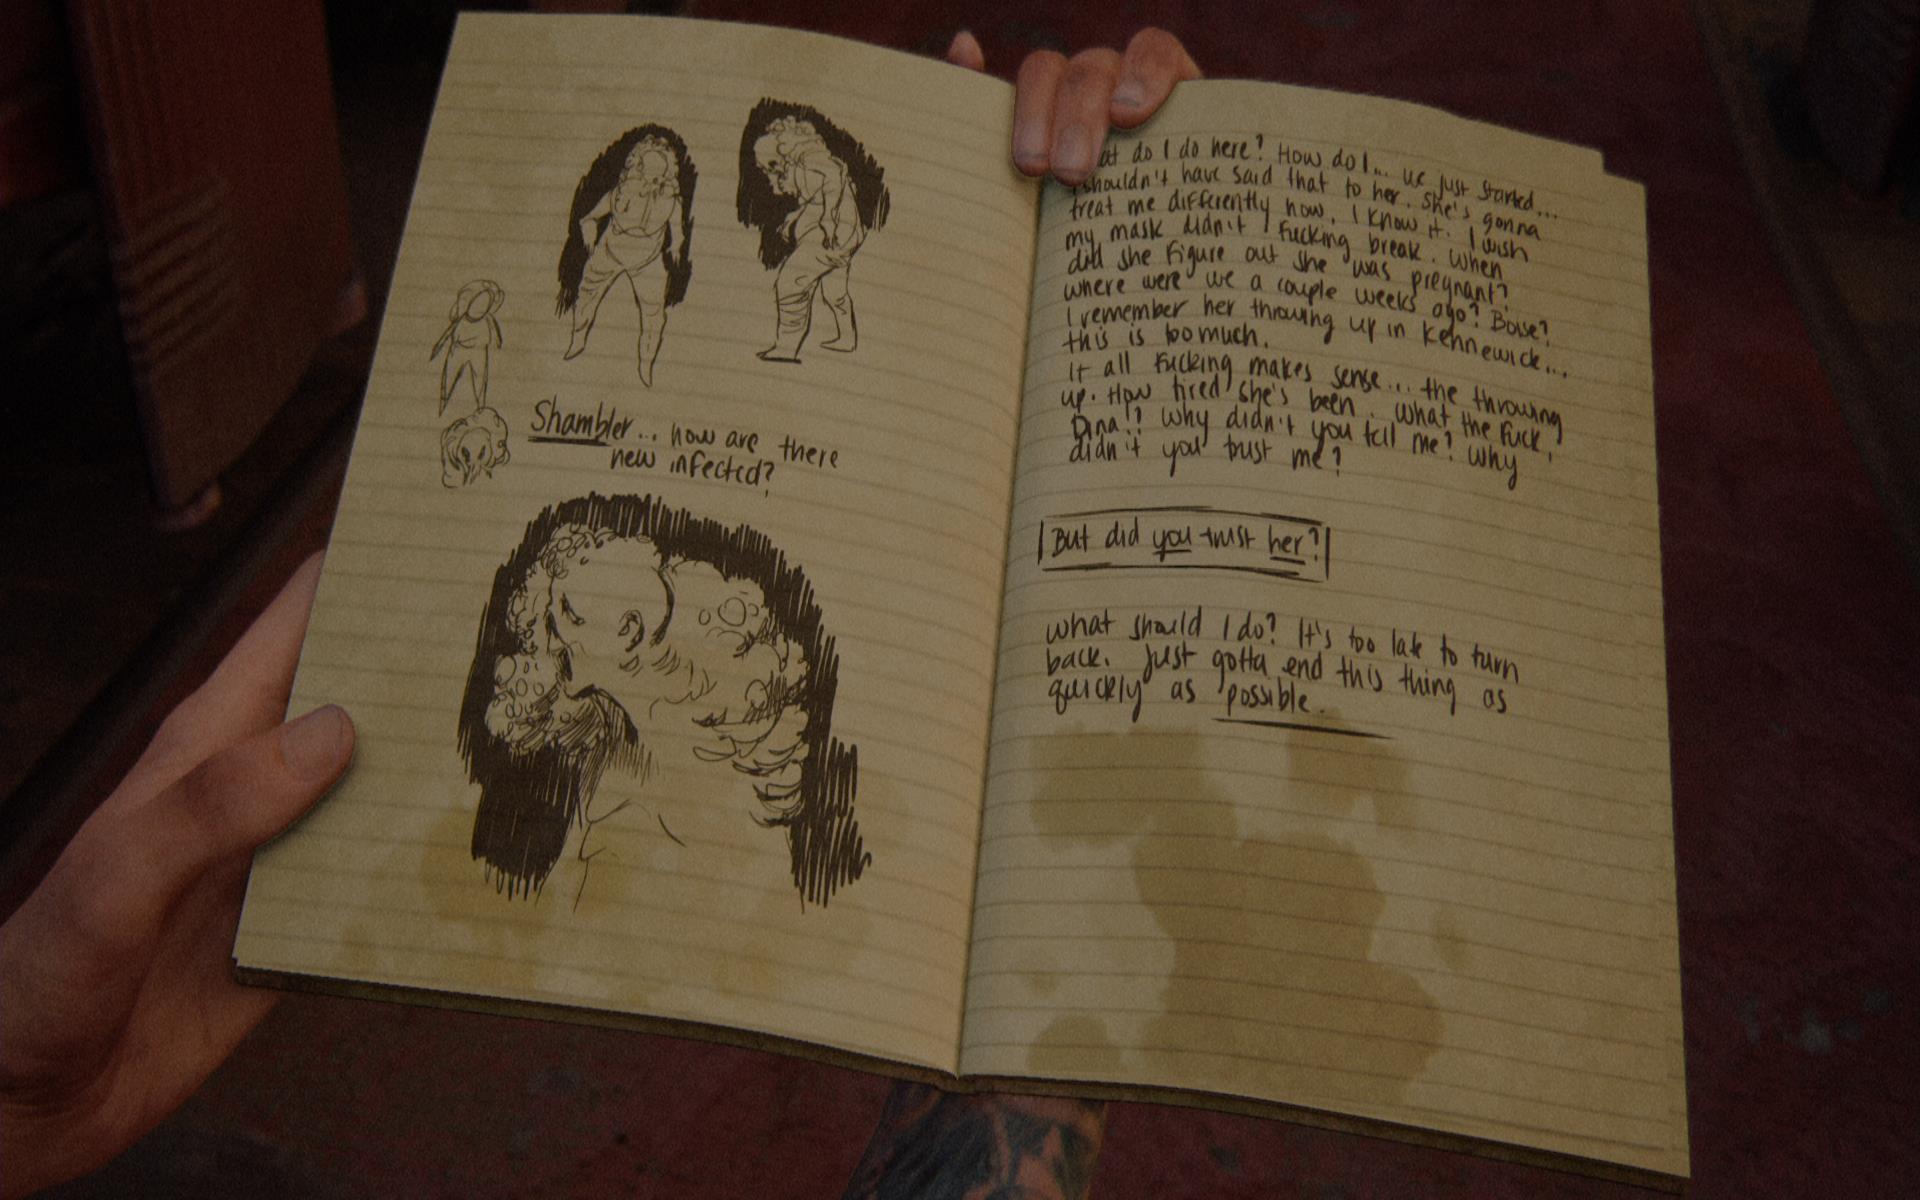 Shambler... how are there
new infected?
do I do here? How do I... we just started...
I shouldn't have said that to her. She's gonna
treat me differently now, I know it. I wish
my mask didn't fucking break. When
did she figure out she was pregnant?
where were we a couple weeks ago? Boise?
I remember her throwing up in Kennewick...
this is too much.
It all fucking makes sense... the throwing
up. How tired she's been. What the fuck,
Dina!! Why didn't you tell me? Why
didn't you trust me?
But did you trust her?
What should I do? It's too late to turn
back. Just gotta end this thing as
quickly as possible.